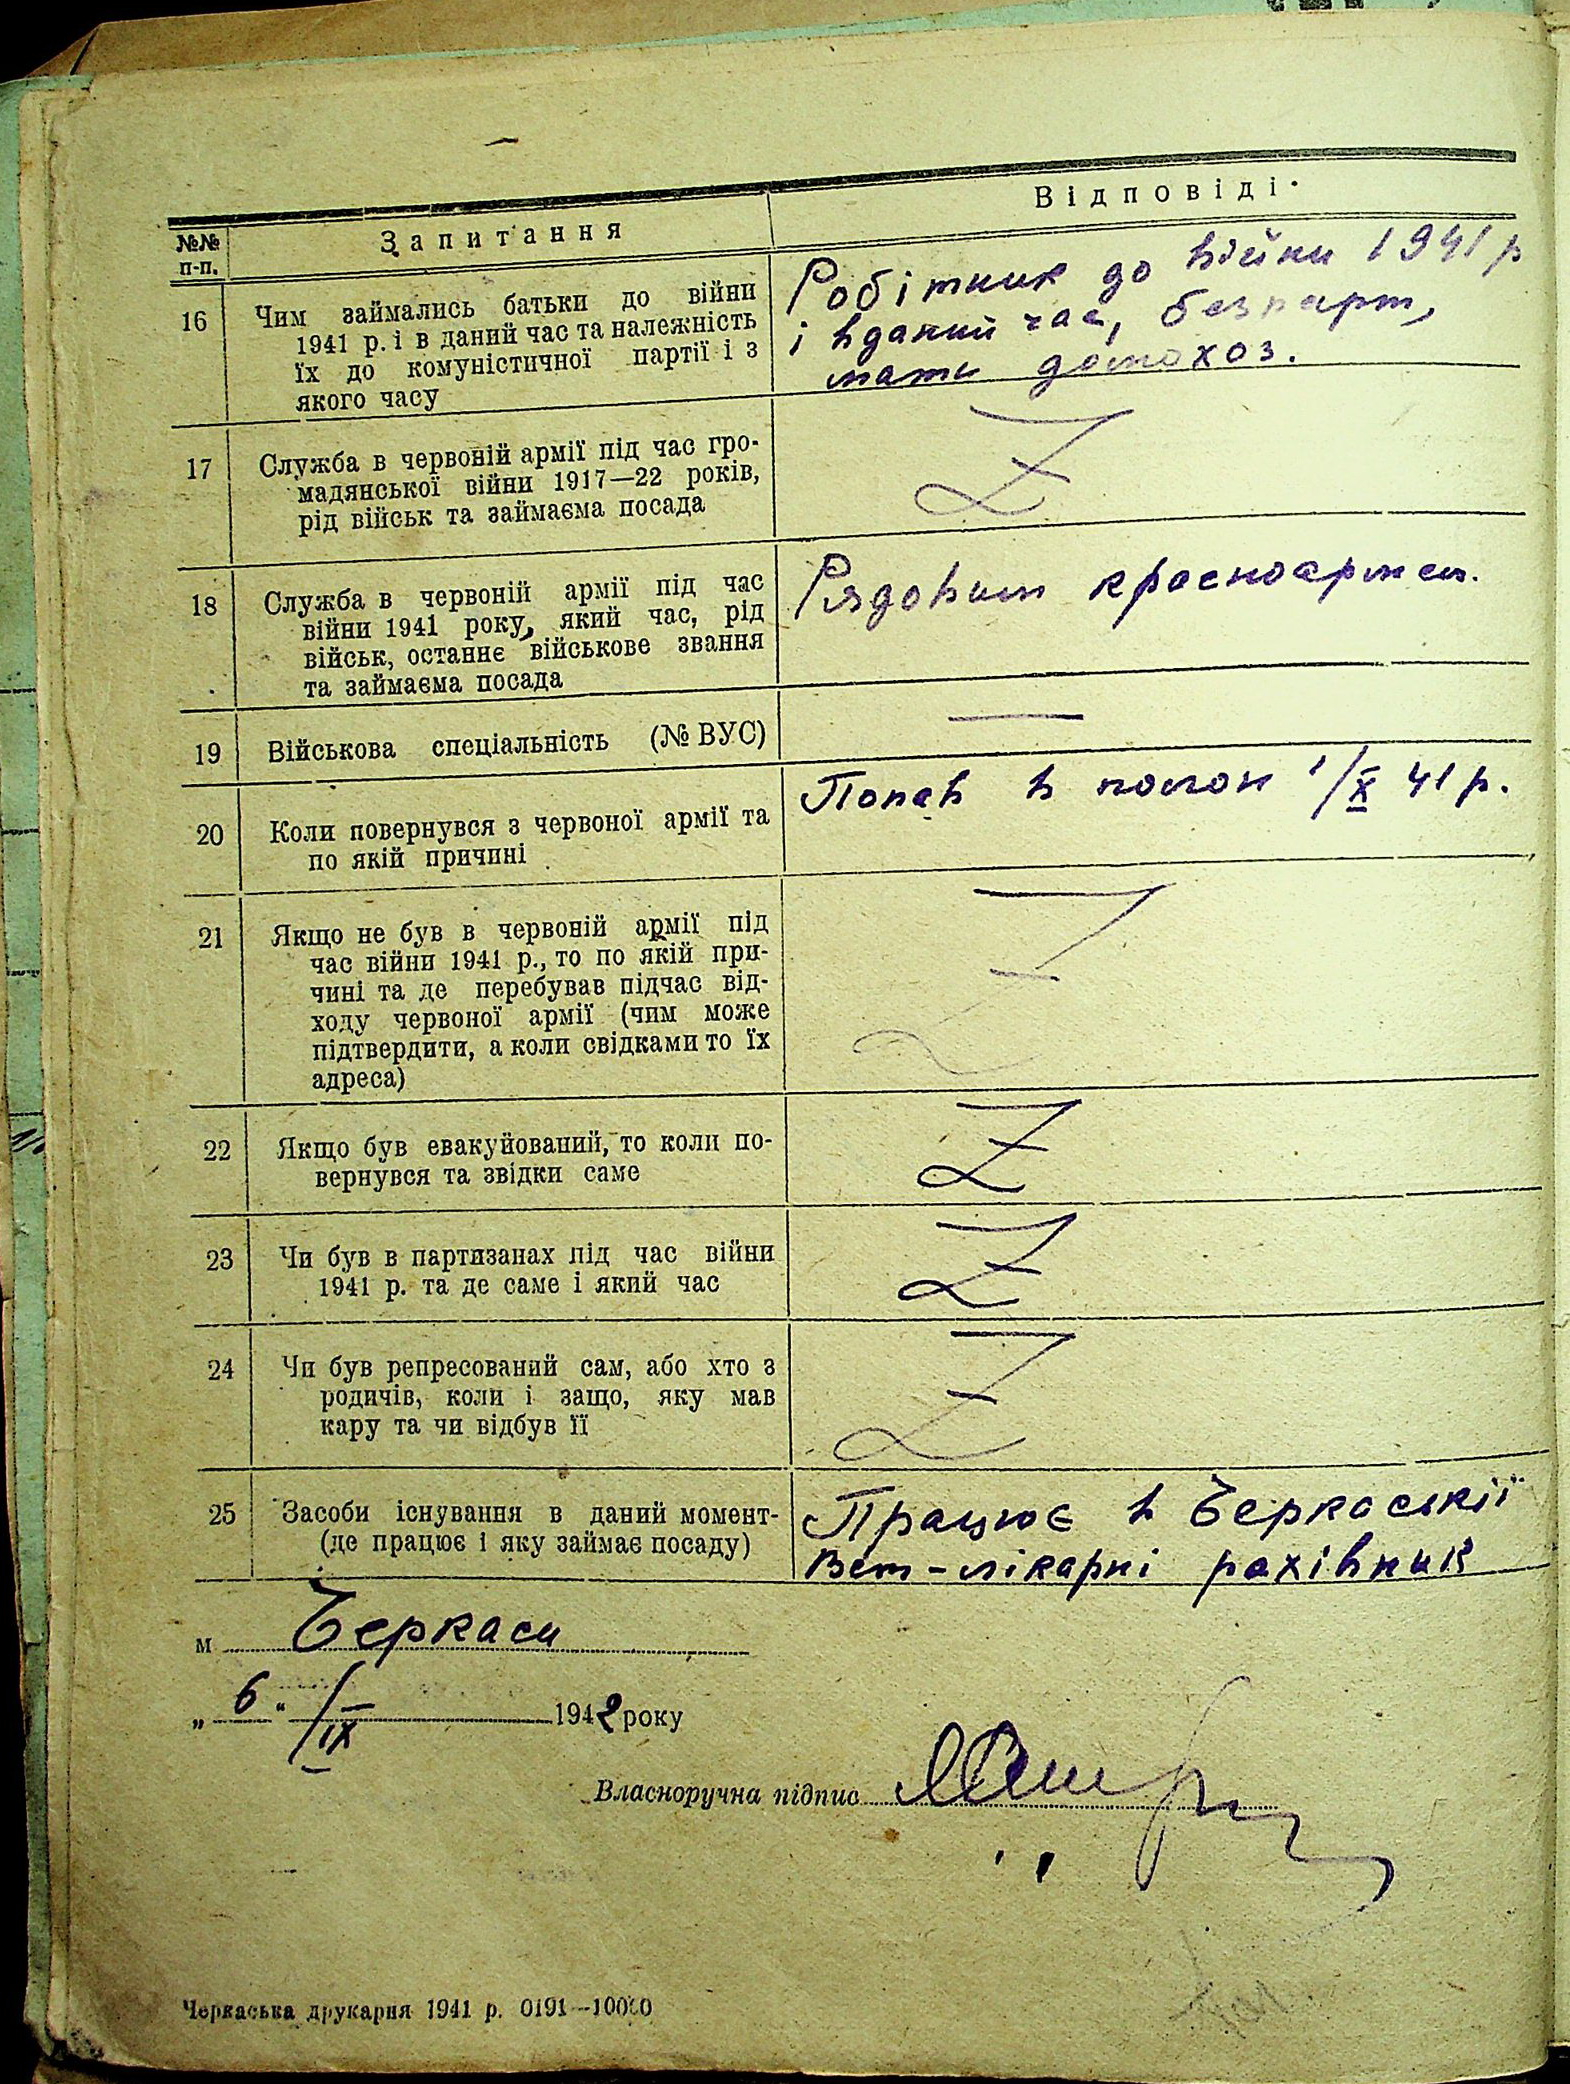 №№ п-п.
Запитання
Відповіді
16
Чим займались батьки до війни
1941 р. і в даний час та належність
їх до комуністичної партії і з
якого часу
Робітник до війни 1941 р
і вданий час, безпарт,
мати домохоз.
17
Служба в червоній армії під час гро-
мадянської війни 1917—22 років,
рід військ та займаєма посада
Z
18
Служба в червоній армії під час
війни 1941 року, який час, рід
військ, останнє військове звання
та займаєма посада
Рядовим красноармем.
19
Військова спеціальність (№ ВУС)
—
20
Коли повернувся з червоної армії та
по якій причині
Попав в полон 1/X 41 р.
21
Якщо не був в червоній армії під
час війни 1941 р., то по якій при-
чині та де перебував підчас від-
ходу червоної армії (чим може
підтвердити, а коли свідками то їх
адреса)
Z
22
Якщо був евакуйований, то коли по-
вернувся та звідки саме
Z
23
Чи був в партизанах під час війни
1941 р. та де саме і який час
Z
24
Чи був репресований сам, або хто з
родичів, коли і защо, яку мав
кару та чи відбув її
Z
25
Засоби існування в даний момент-
(де працює і яку займає посаду)
Працює в Черкаській
Вет-лікарні рахівник
м Черкаси
„ 6 “ /IX 1942 року
Власноручна підпис
Черкаська друкарня 1941 р. 0191—10000